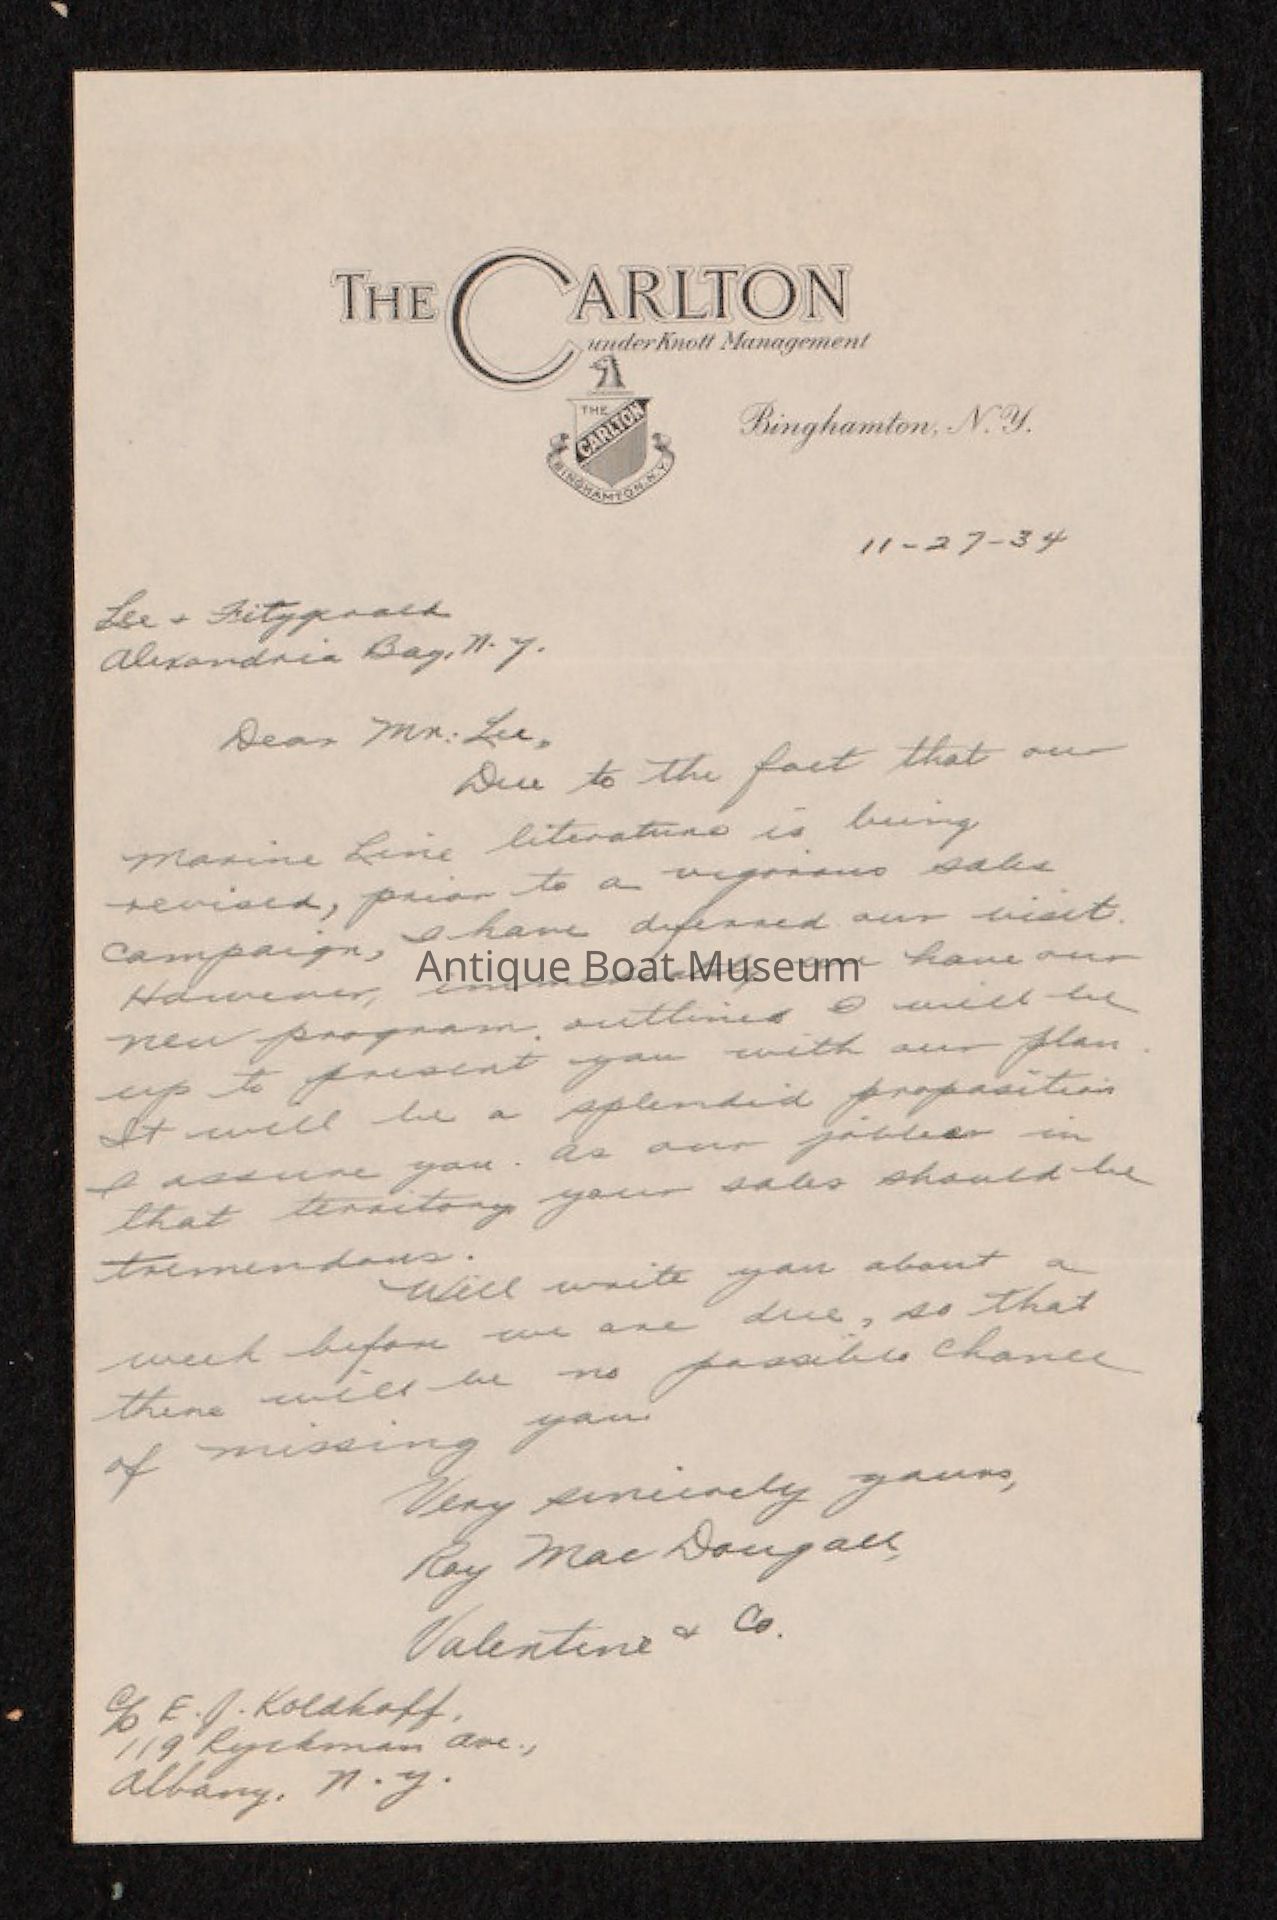 THE CARLTON
under Knott Management
THE
CARLTON
BINGHAMTON, N.Y.
Binghamton, N.Y.
11-27-34
Lee & Fitzgerald
Alexandria Bay, N.Y.
Dear Mr. Lee,
Due to the fact that our
Marine Line literature is being
revised, prior to a vigorous sales
campaign, I have deferred our visit.
However, immediately we have our
Antique Boat Museum
new program outlined I will be
up to present you with our plan.
It will be a splendid proposition
I assure you. As our jobber in
that territory your sales should be
tremendous.
Will write you about a
week before we are due, so that
there will be no possible chance
of missing you
Very sincerely yours,
Roy MacDougall,
Valentine & Co.
c/o E. J. Koldhoff,
119 Ryckman Ave.,
Albany, N.Y.